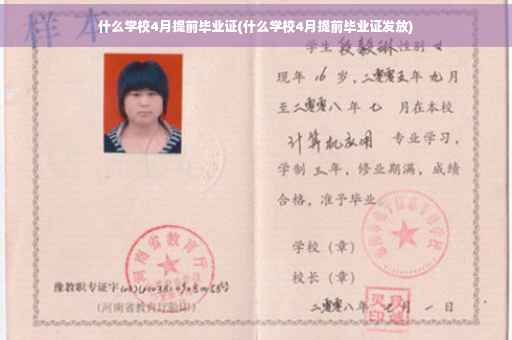 什么学校4月提前毕业证(什么学校4月提前毕业证发放)
样本
学生段毅琳性别女
现年16岁，二零零五年九月
至二零零八年七月在本校
计算机应用 专业学习，
学制三年，修业期满，成绩
合格，准予毕业。
学校（章）
校长（章）
二零零八年七月一日
河南省教育厅
豫教职专证字
（河南省教育厅监印）